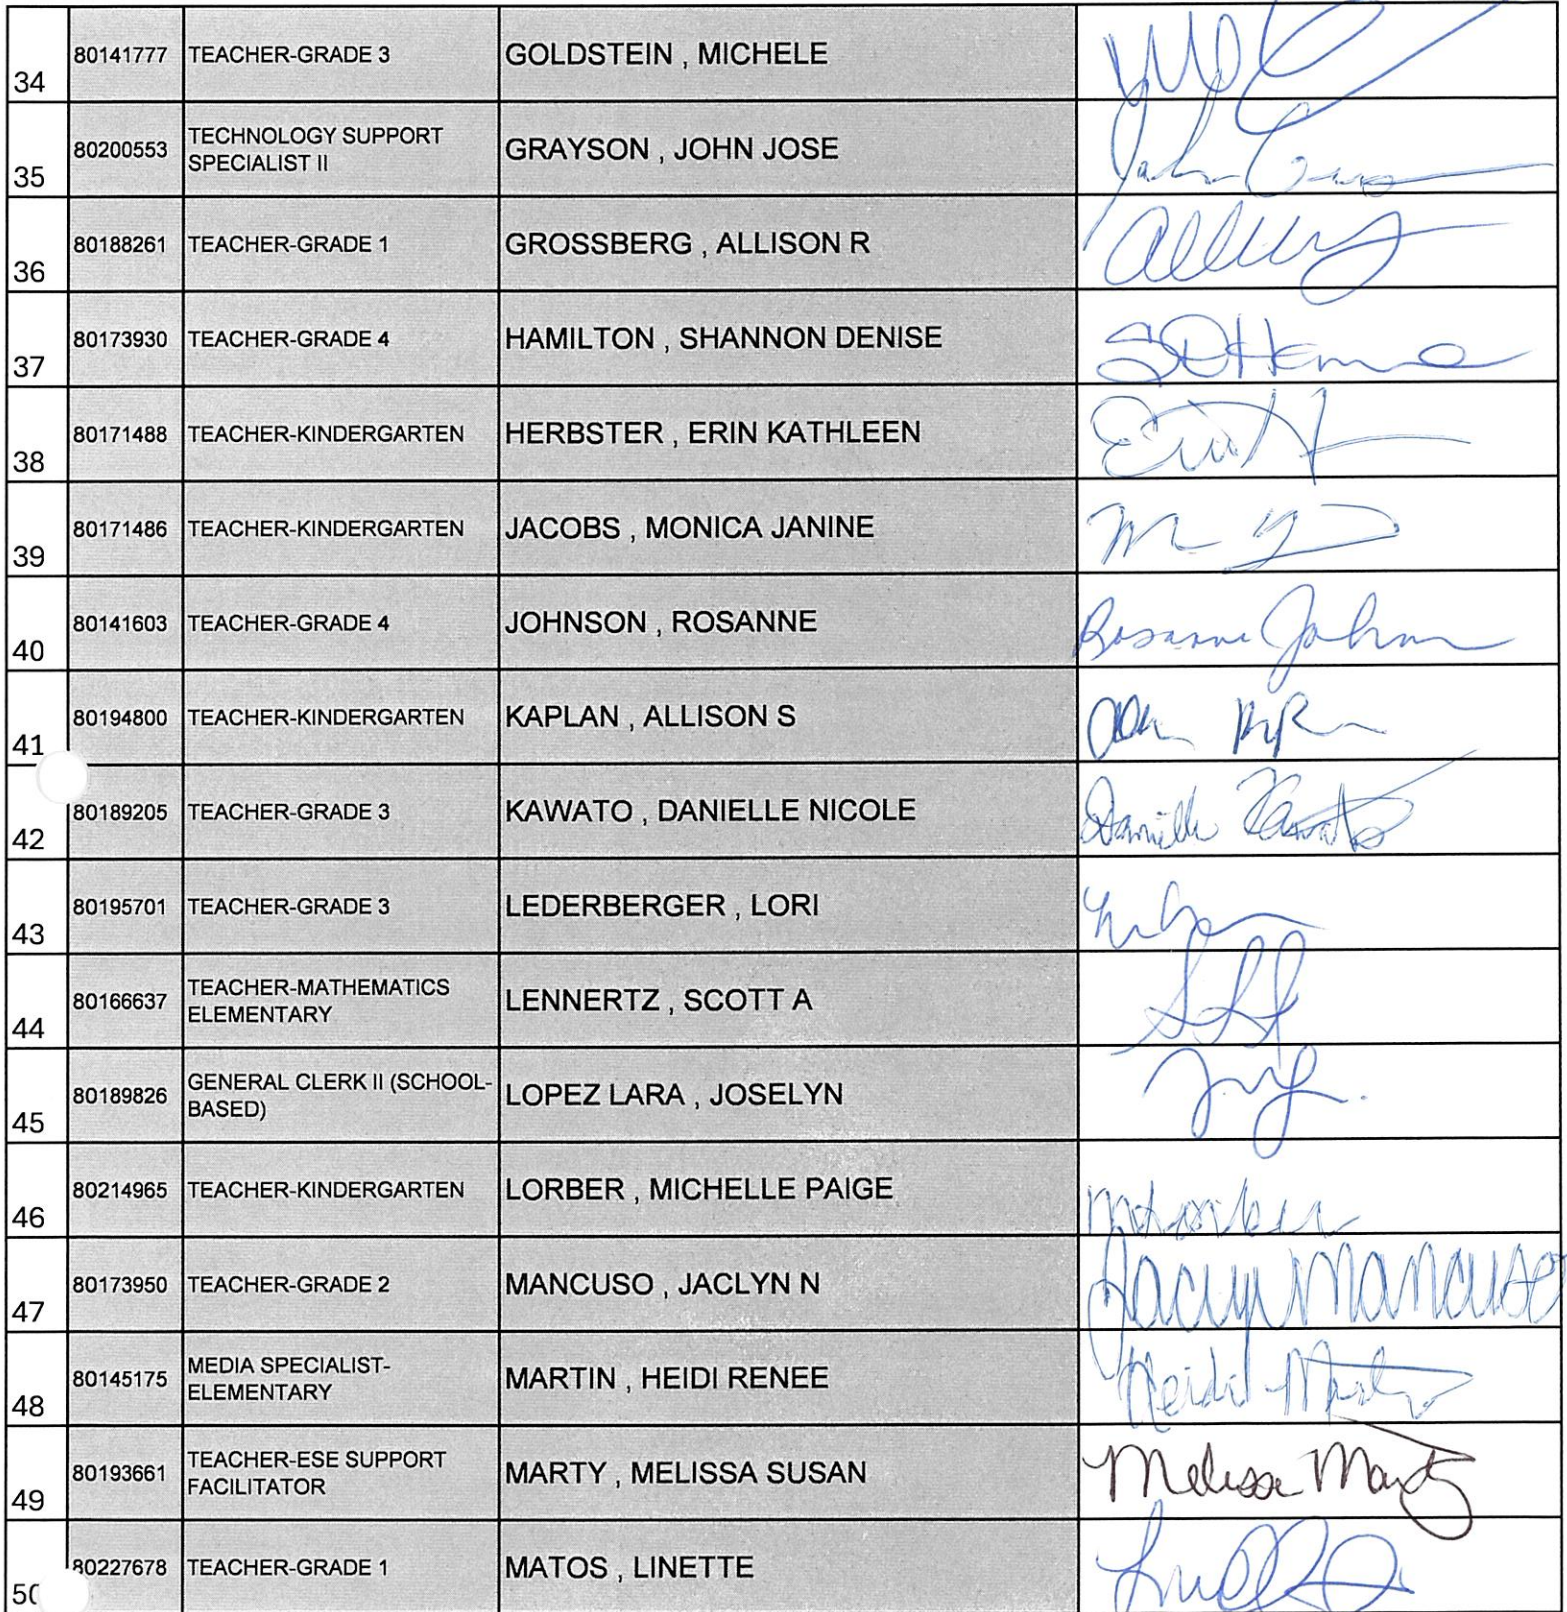 34 80141777 TEACHER-GRADE 3 GOLDSTEIN , MICHELE
35 80200553 TECHNOLOGY SUPPORT SPECIALIST II GRAYSON , JOHN JOSE John
36 80188261 TEACHER-GRADE 1 GROSSBERG , ALLISON R
37 80173930 TEACHER-GRADE 4 HAMILTON , SHANNON DENISE
38 80171488 TEACHER-KINDERGARTEN HERBSTER , ERIN KATHLEEN
39 80171486 TEACHER-KINDERGARTEN JACOBS , MONICA JANINE
40 80141603 TEACHER-GRADE 4 JOHNSON , ROSANNE Rosanne Johnson
41 80194800 TEACHER-KINDERGARTEN KAPLAN , ALLISON S
42 80189205 TEACHER-GRADE 3 KAWATO , DANIELLE NICOLE Danielle Kawato
43 80195701 TEACHER-GRADE 3 LEDERBERGER , LORI
44 80166637 TEACHER-MATHEMATICS ELEMENTARY LENNERTZ , SCOTT A
45 80189826 GENERAL CLERK II (SCHOOL-BASED) LOPEZ LARA , JOSELYN
46 80214965 TEACHER-KINDERGARTEN LORBER , MICHELLE PAIGE
47 80173950 TEACHER-GRADE 2 MANCUSO , JACLYN N Jaclyn Mancuso
48 80145175 MEDIA SPECIALIST-ELEMENTARY MARTIN , HEIDI RENEE Heidi Martin
49 80193661 TEACHER-ESE SUPPORT FACILITATOR MARTY , MELISSA SUSAN Melissa Marty
50 80227678 TEACHER-GRADE 1 MATOS , LINETTE